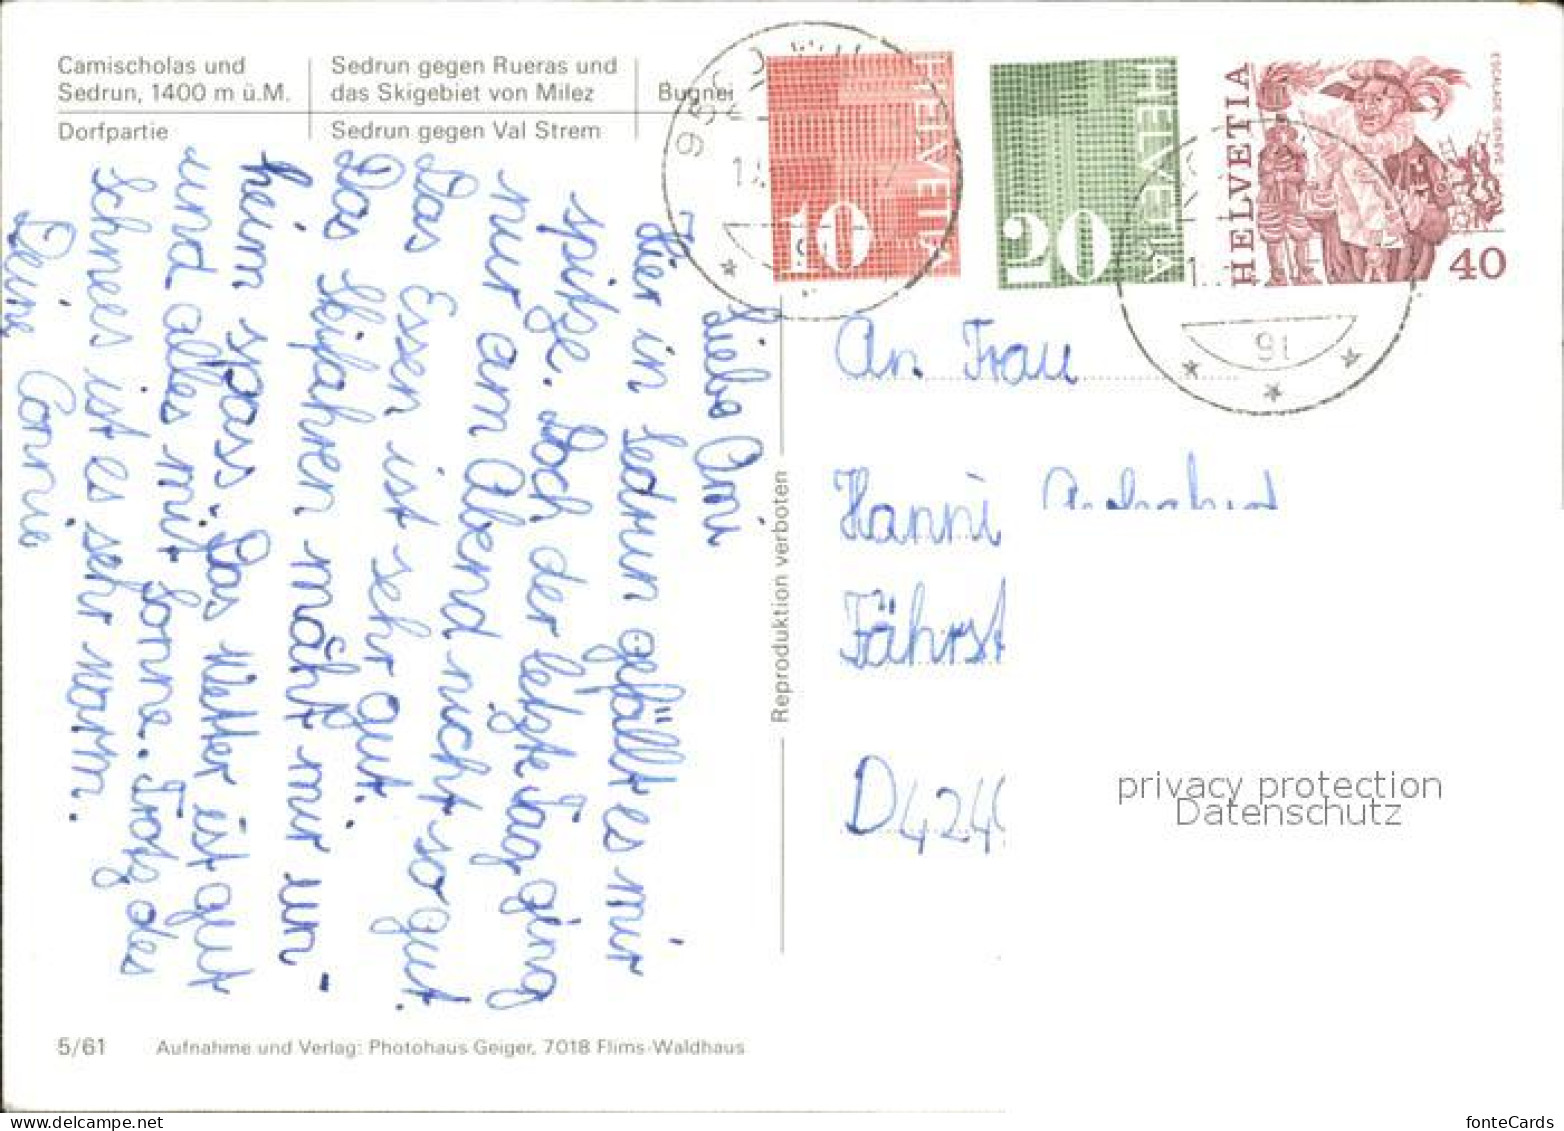 Camischolas und
Sedrun, 1400 m ü.M.
Dorfpartie
Sedrun gegen Rueras und
das Skigebiet von Milez
Sedrun gegen Val Strem
Bugnei
Liebe Omi
Hier in Sedrun gefällt es mir
spitze. Doch der letzte Tag ging
nur am Abend nicht so gut.
Das Essen ist sehr gut.
Das Skifahren mäht mir un-
heim spass. Das Wetter ist gut
und alles mit Sonne. Trotz des
Schnees ist es sehr warm.
Deine Connie
5/61 Aufnahme und Verlag: Photohaus Geiger, 7018 Flims-Waldhaus
Reproduktion verboten
HELVETIA
10
HELVETIA
20
HELVETIA
ESCALADE-GENÈVE
40
91
An Frau
Hanni
Fährst
D 424
privacy protection
Datenschutz
fonteCards
www.delcampe.net